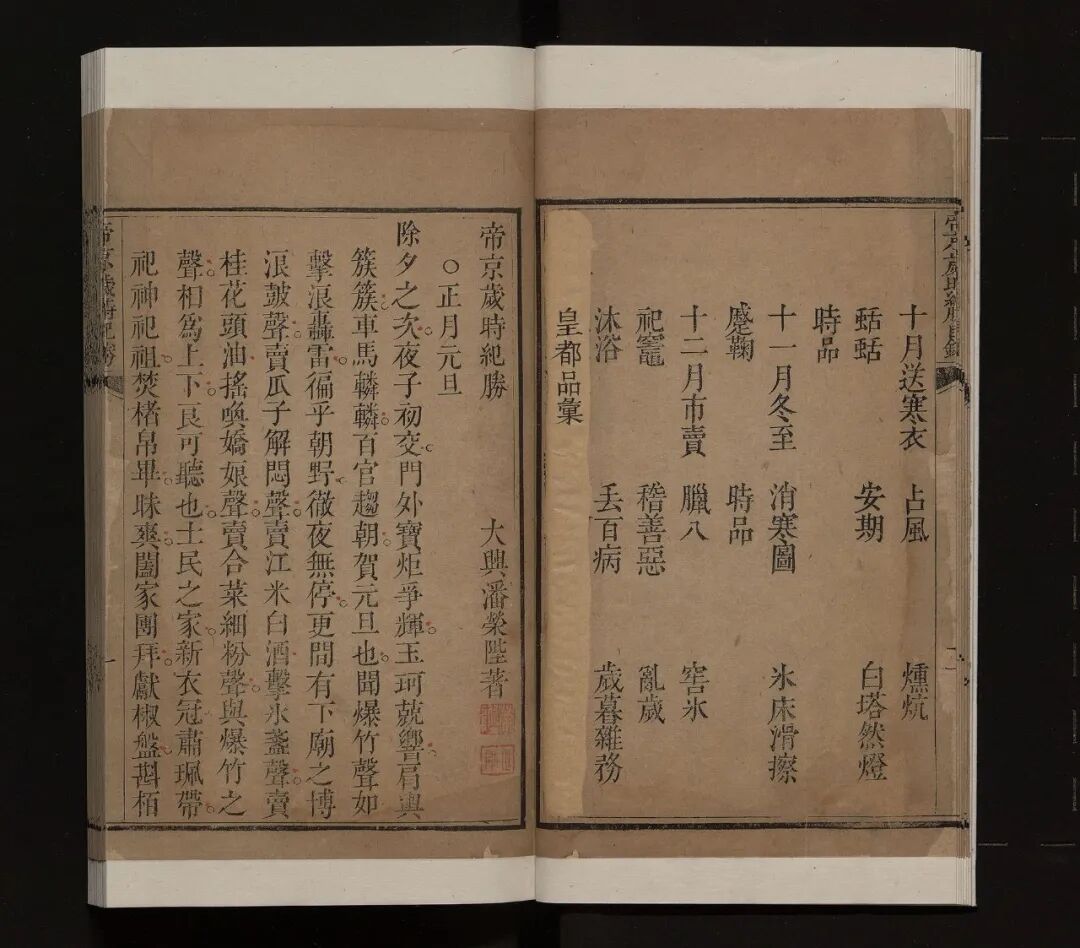 帝京歲時紀勝目錄
十月送寒衣 占風 燻炕
蛞蛞 安期 白塔然燈
時品
十一月冬至 消寒圖 氷床滑擦
蹙鞠 時品
十二月市賣 臘八 窖氷
祀竈 稽善惡 亂歲
沐浴 丟百病 歲暮雜務
皇都品彙
帝京歲時紀勝
大興潘榮陛著
○正月元旦
除夕之次夜子初交門外寶炬爭輝玉珂競響肩輿
簇簇車馬轔轔百官趨朝賀元旦也聞爆竹聲如
擊浪轟雷徧乎朝野徹夜無停更間有下廟之博
浪皷聲賣瓜子解悶聲賣江米白酒擊氷盞聲賣
桂花頭油搖喚嬌娘聲賣合菜細粉聲與爆竹之
聲相爲上下良可聽也士民之家新衣冠肅珮帶
祀神祀祖焚楮帛畢昧爽闔家團拜獻椒盤斟栢
帝京歲時紀勝
一